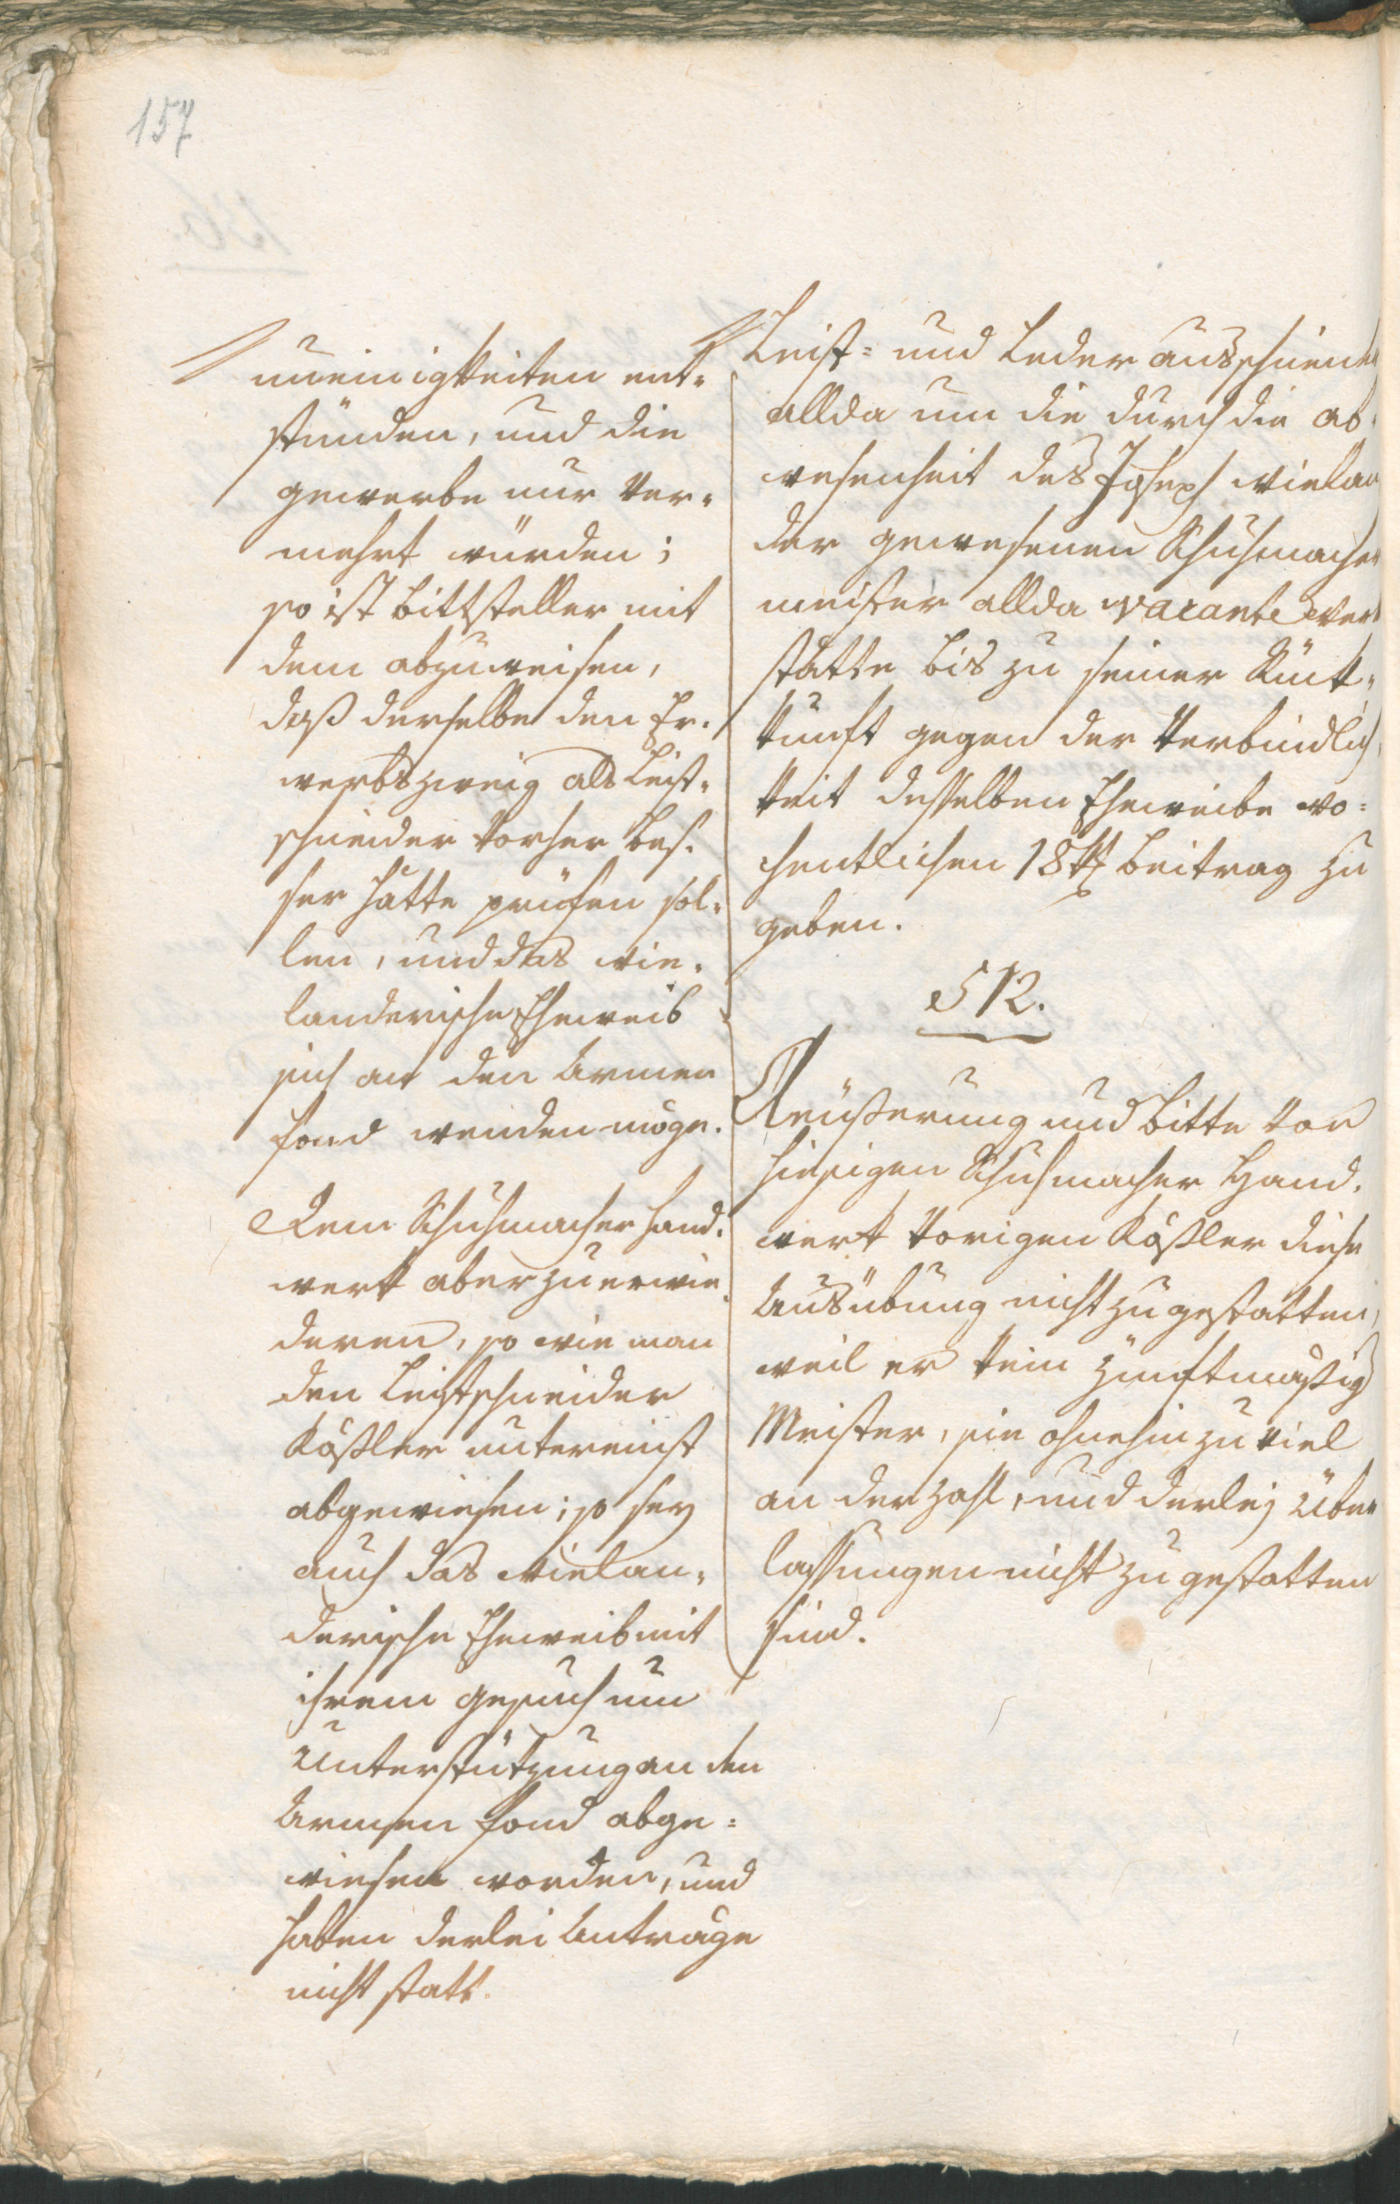 157
uneinigkeiten ent-
stünden, und die
gewerbe nur ver-
mehrt würden;
so ist bittsteller mit
dem abzuweisen,
daß derselbe den Er-
werbszweig als Leist-
schneider vorher bes-
ser hätte prüfen sol-
len, und das wie-
landerische Eheweib
sich an den Armen
fond wenden möge.
Dem Schuhmacher hand-
werk aber zu erwie-
deren, so wie man
den Leistschneider
Kößler untereinst
abgewiesen; so sey
auch das wielan-
derische Eheweib mit
ihrem gesuch um
Unterstützung an den
Armen fond abge=
wiesen worden, und
haben derlei Anträge
nicht statt.
Leist= und Leder ausschneider
allda um die durch die ab-
wesenheit des Joseph wielan
der gewesenen Schuhmacher
meister allda vacante werk
stätte bis zu seiner Rück-
kunft gegen der Verbindlich
keit desselben Eheweibe wo=
chentlichen 18 Beitrag zu
geben.
512.
Aeüßerung und bitte von
hiesigen Schuhmacher Hand-
werk vorigen Kößler diese
Ausübung nicht zu gestatten,
weil er kein zünftmäßig
Meister, sie ohnehin zu viel
an der zahl, und derlej Über
lassungen nicht zu gestatten
sind.